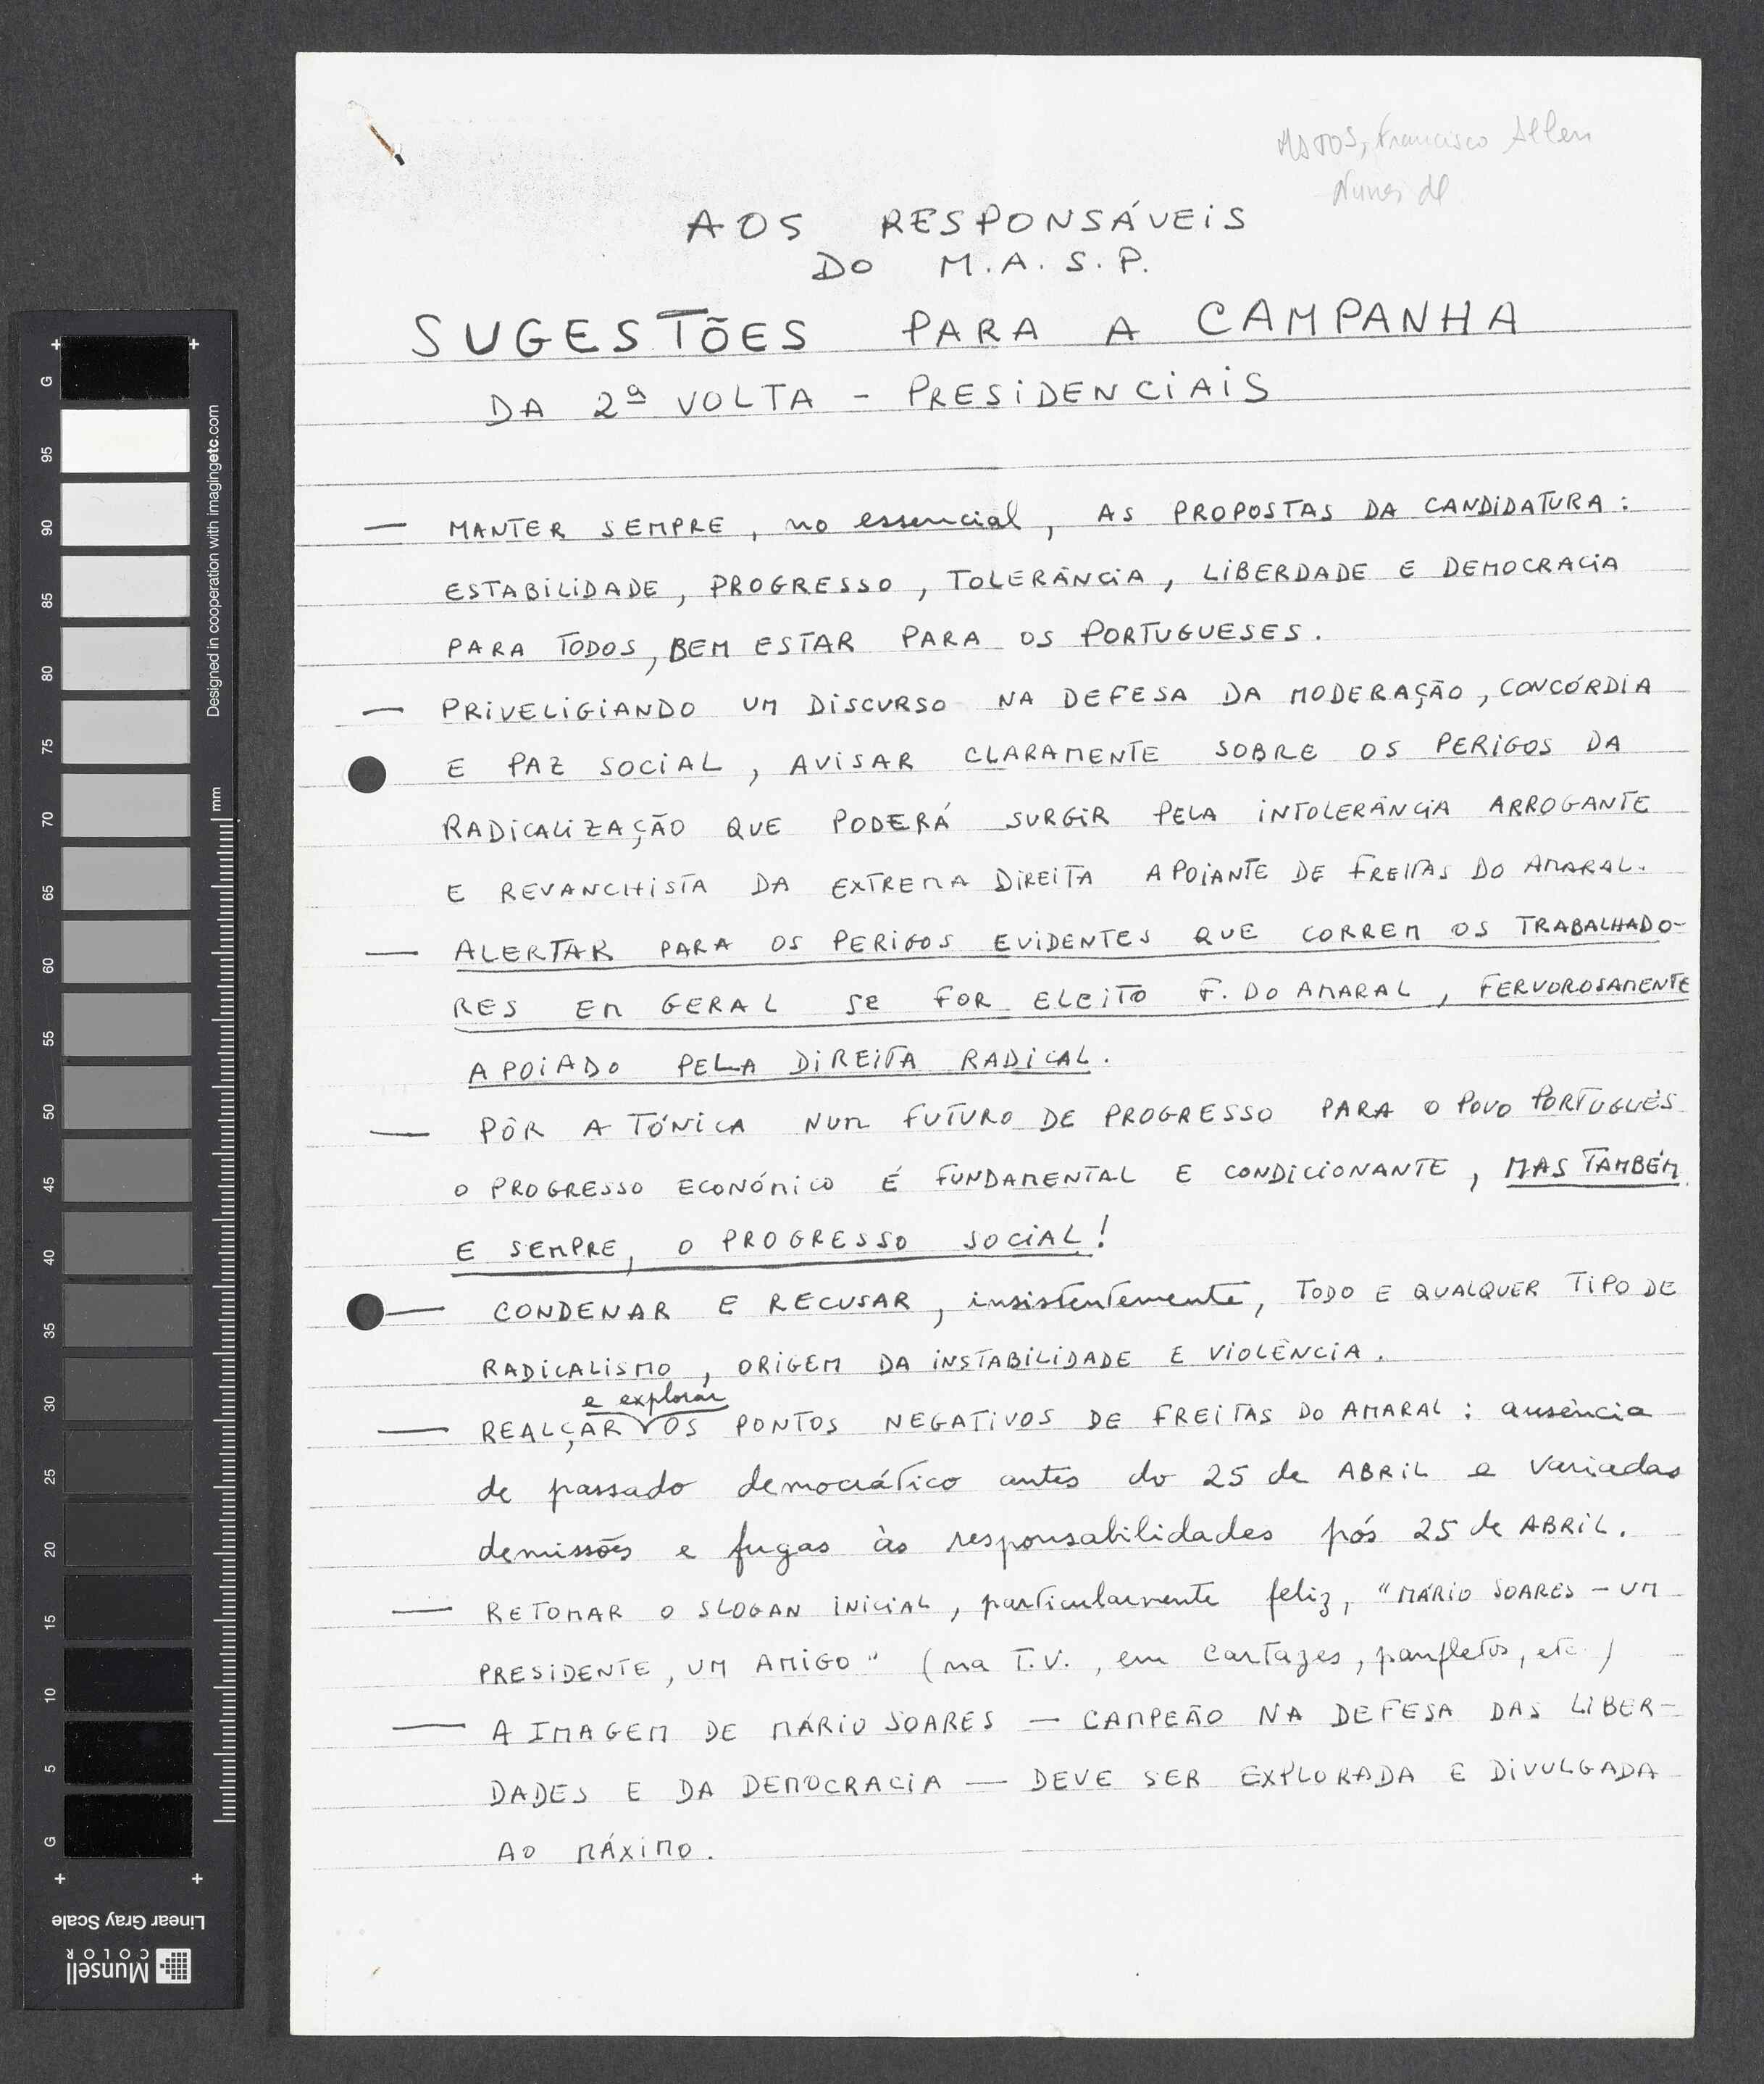 MATOS, Francisco Allen
Nunes de
AOS RESPONSÁVEIS
DO M.A.S.P.
SUGESTÕES PARA A CAMPANHA
DA 2ª VOLTA - PRESIDENCIAIS
— MANTER SEMPRE, no essencial, AS PROPOSTAS DA CANDIDATURA:
ESTABILIDADE, PROGRESSO, TOLERÂNCIA, LIBERDADE E DEMOCRACIA
PARA TODOS, BEM ESTAR PARA OS PORTUGUESES.
— PRIVELIGIANDO UM DISCURSO NA DEFESA DA MODERAÇÃO, CONCÓRDIA
E PAZ SOCIAL, AVISAR CLARAMENTE SOBRE OS PERIGOS DA
RADICALIZAÇÃO QUE PODERÁ SURGIR PELA INTOLERÂNCIA ARROGANTE
E REVANCHISTA DA EXTREMA DIREITA APOIANTE DE FREITAS DO AMARAL.
— ALERTAR PARA OS PERIGOS EVIDENTES QUE CORREM OS TRABALHADO-
RES EM GERAL SE FOR ELEITO F. DO AMARAL, FERVOROSAMENTE
APOIADO PELA DIREITA RADICAL.
— PÔR A TÓNICA NUM FUTURO DE PROGRESSO PARA O POVO PORTUGUÊS
O PROGRESSO ECONÓMICO É FUNDAMENTAL E CONDICIONANTE, MAS TAMBÉM
E SEMPRE, O PROGRESSO SOCIAL!
— CONDENAR E RECUSAR, insistentemente, TODO E QUALQUER TIPO DE
RADICALISMO, ORIGEM DA INSTABILIDADE E VIOLÊNCIA.
e explorar
— REALÇAR OS PONTOS NEGATIVOS DE FREITAS DO AMARAL: ausência
de passado democrático antes do 25 de ABRIL e variadas
demissões e fugas às responsabilidades pós 25 de ABRIL.
— RETOMAR O SLOGAN INICIAL, particularmente feliz, "MÁRIO SOARES - UM
PRESIDENTE, UM AMIGO" (na T.V., em cartazes, panfletos, etc.)
— A IMAGEM DE MÁRIO SOARES — CAMPEÃO NA DEFESA DAS LIBER-
DADES E DA DEMOCRACIA — DEVE SER EXPLORADA E DIVULGADA
AO MÁXIMO.
G 95 90 85 80 75 70 65 60 55 50 45 40 35 30 25 20 15 10 5 G
Designed in cooperation with imagingetc.com
mm
Linear Gray Scale
Munsell
COLOR